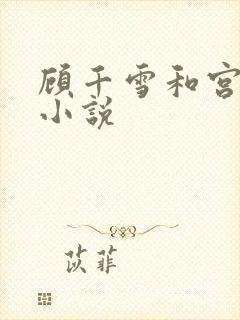 顾千雪和宫
小说
苡菲